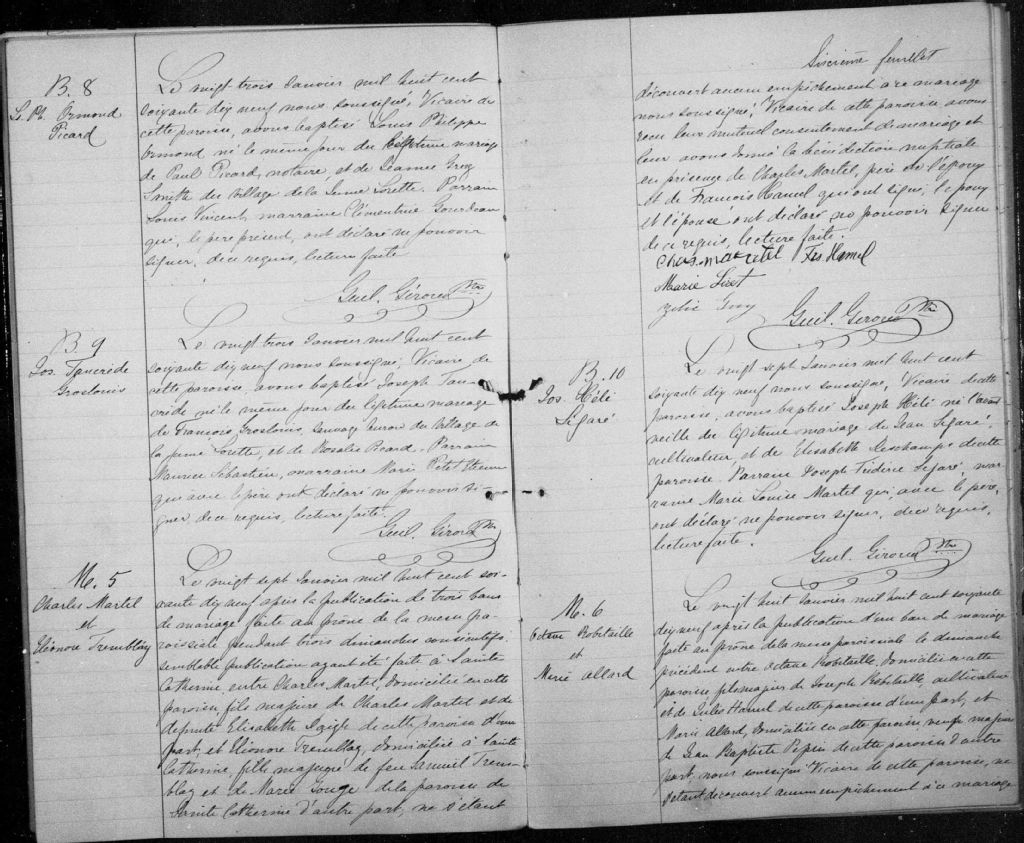 B. 8
Ls. Ph. Ormond
Picard
Le vingt trois Janvier mil huit cent
soixante dix neuf nous soussigné, Vicaire de
cette paroisse, avons baptisé Louis Philippe
Ormond né le même jour du légitime mariage
de Paul Picard, notaire, et de Jeanne Grey
Smith du village de la Jeune Lorette. Parrain
Louis Vincent, marraine Clémentine Gourdeau
qui, le père présent, ont déclaré ne pouvoir
signer, de ce requis, lecture faite
Guil. Giroux Ptre
B. 9
Jos. Tancrède
Groslouis
Le vingt trois Janvier mil huit cent
soixante dix neuf nous soussigné, Vicaire de
cette paroisse, avons baptisé Joseph Tan-
crède né le même jour du légitime mariage
de François Groslouis, sauvage huron du village de
la jeune Lorette, et de Rosalie Picard. Parrain
Maurice Sébastien, marraine Marie Petit Etienne
qui avec le père ont déclaré ne pouvoir si-
gner, de ce requis, lecture faite.
Guil. Giroux Ptre
M. 5
Charles Martel
et
Eléonore Tremblay
Le vingt sept Janvier mil huit cent soi-
xante dix neuf après la publication de trois bans
de mariage faite au prône de la messe pa-
roissiale pendant trois dimanches consécutifs
semblable publication ayant été faite à Sainte
Catherine entre Charles Martel, domicilié en cette
paroisse, fils majeur de Charles Martel et de
défunte Elisabeth de cette paroisse d'une
part, et Eléonore Tremblay, domiciliée à Sainte
Catherine, fille majeure de feu Samuel Trem-
blay et de Marie de la paroisse de
Sainte Catherine d'autre part, ne s'étant
Sixième feuillet
découvert aucun empêchement à ce mariage
nous soussigné, Vicaire de cette paroisse, avons
recu leur mutuel consentement de mariage et
leur avons donné la bénédiction nuptiale
en présence de Charles Martel, père de l'époux
et de François Hamel qui ont signé; l'époux
et l'épouse ont déclaré ne pouvoir signer
de ce requis, lecture faite.
Chas. Martel Frs. Hamel
Marie
Guil. Giroux Ptre
B. 10
Jos. Héli
Légaré
Le vingt sept Janvier mil huit cent
soixante dix neuf nous soussigné, Vicaire de cette
paroisse, avons baptisé Joseph Héli né l'avant
veille du légitime mariage de Jean Légaré,
cultivateur, et de Elisabeth Deschamps de cette
paroisse. Parrain Joseph Frédéric Légaré, mar-
raine Marie Louise Martel qui, avec le père,
ont déclaré ne pouvoir signer, de ce requis,
lecture faite.
Guil. Giroux Ptre
M. 6
Octave Robitaille
et
Marie Allard
Le vingt huit Janvier mil huit cent soixante
dix neuf après la publication d'un ban de mariage
faite au prône de la messe paroissiale le dimanche
précédent entre Octave Robitaille, domicilié en cette
paroisse fils majeur de Joseph Robitaille, cultivateur
et de Julie Hamel de cette paroisse d'une part, et
Marie Allard, domiciliée en cette paroisse veuve majeure
de Jean Baptiste Pepin de cette paroisse d'autre
part, nous soussigné Vicaire de cette paroisse, ne
s'étant découvert aucun empêchement à ce mariage